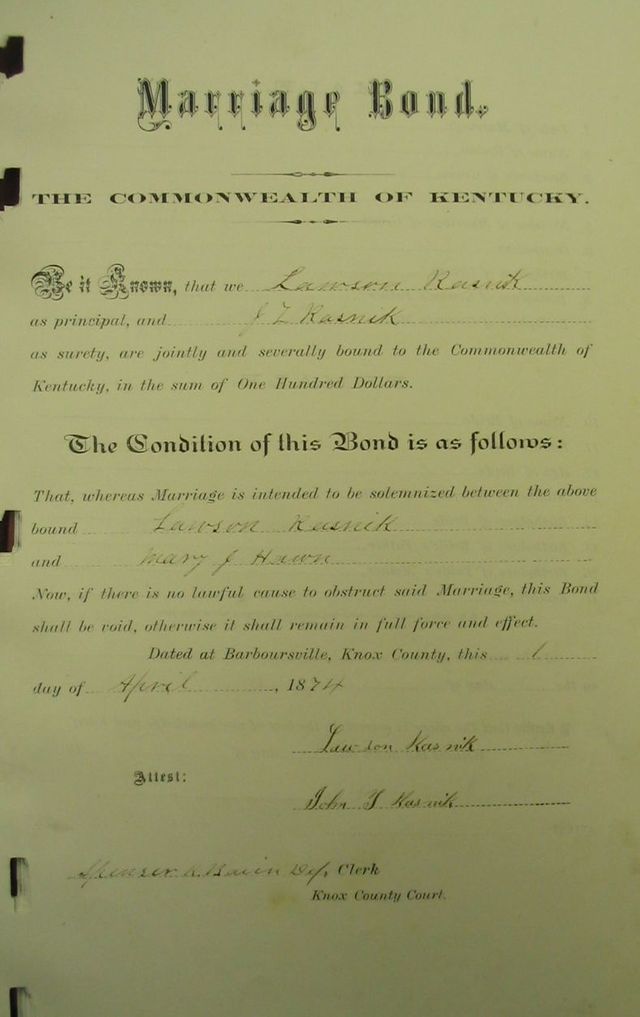 Marriage Bond.
THE COMMONWEALTH OF KENTUCKY.
Be it Known, that we Lawson Kasnik
as principal, and J T Kasnik
as surety, are jointly and severally bound to the Commonwealth of
Kentucky, in the sum of One Hundred Dollars.
The Condition of this Bond is as follows:
That, whereas Marriage is intended to be solemnized between the above
bound Lawson Kasnik
and Mary J Hawn
Now, if there is no lawful cause to obstruct said Marriage, this Bond
shall be void, otherwise it shall remain in full force and effect.
Dated at Barboursville, Knox County, this 1
day of April, 1874
Lawson Kasnik
Attest:
John T Kasnik
Spenser Dep, Clerk
Knox County Court.